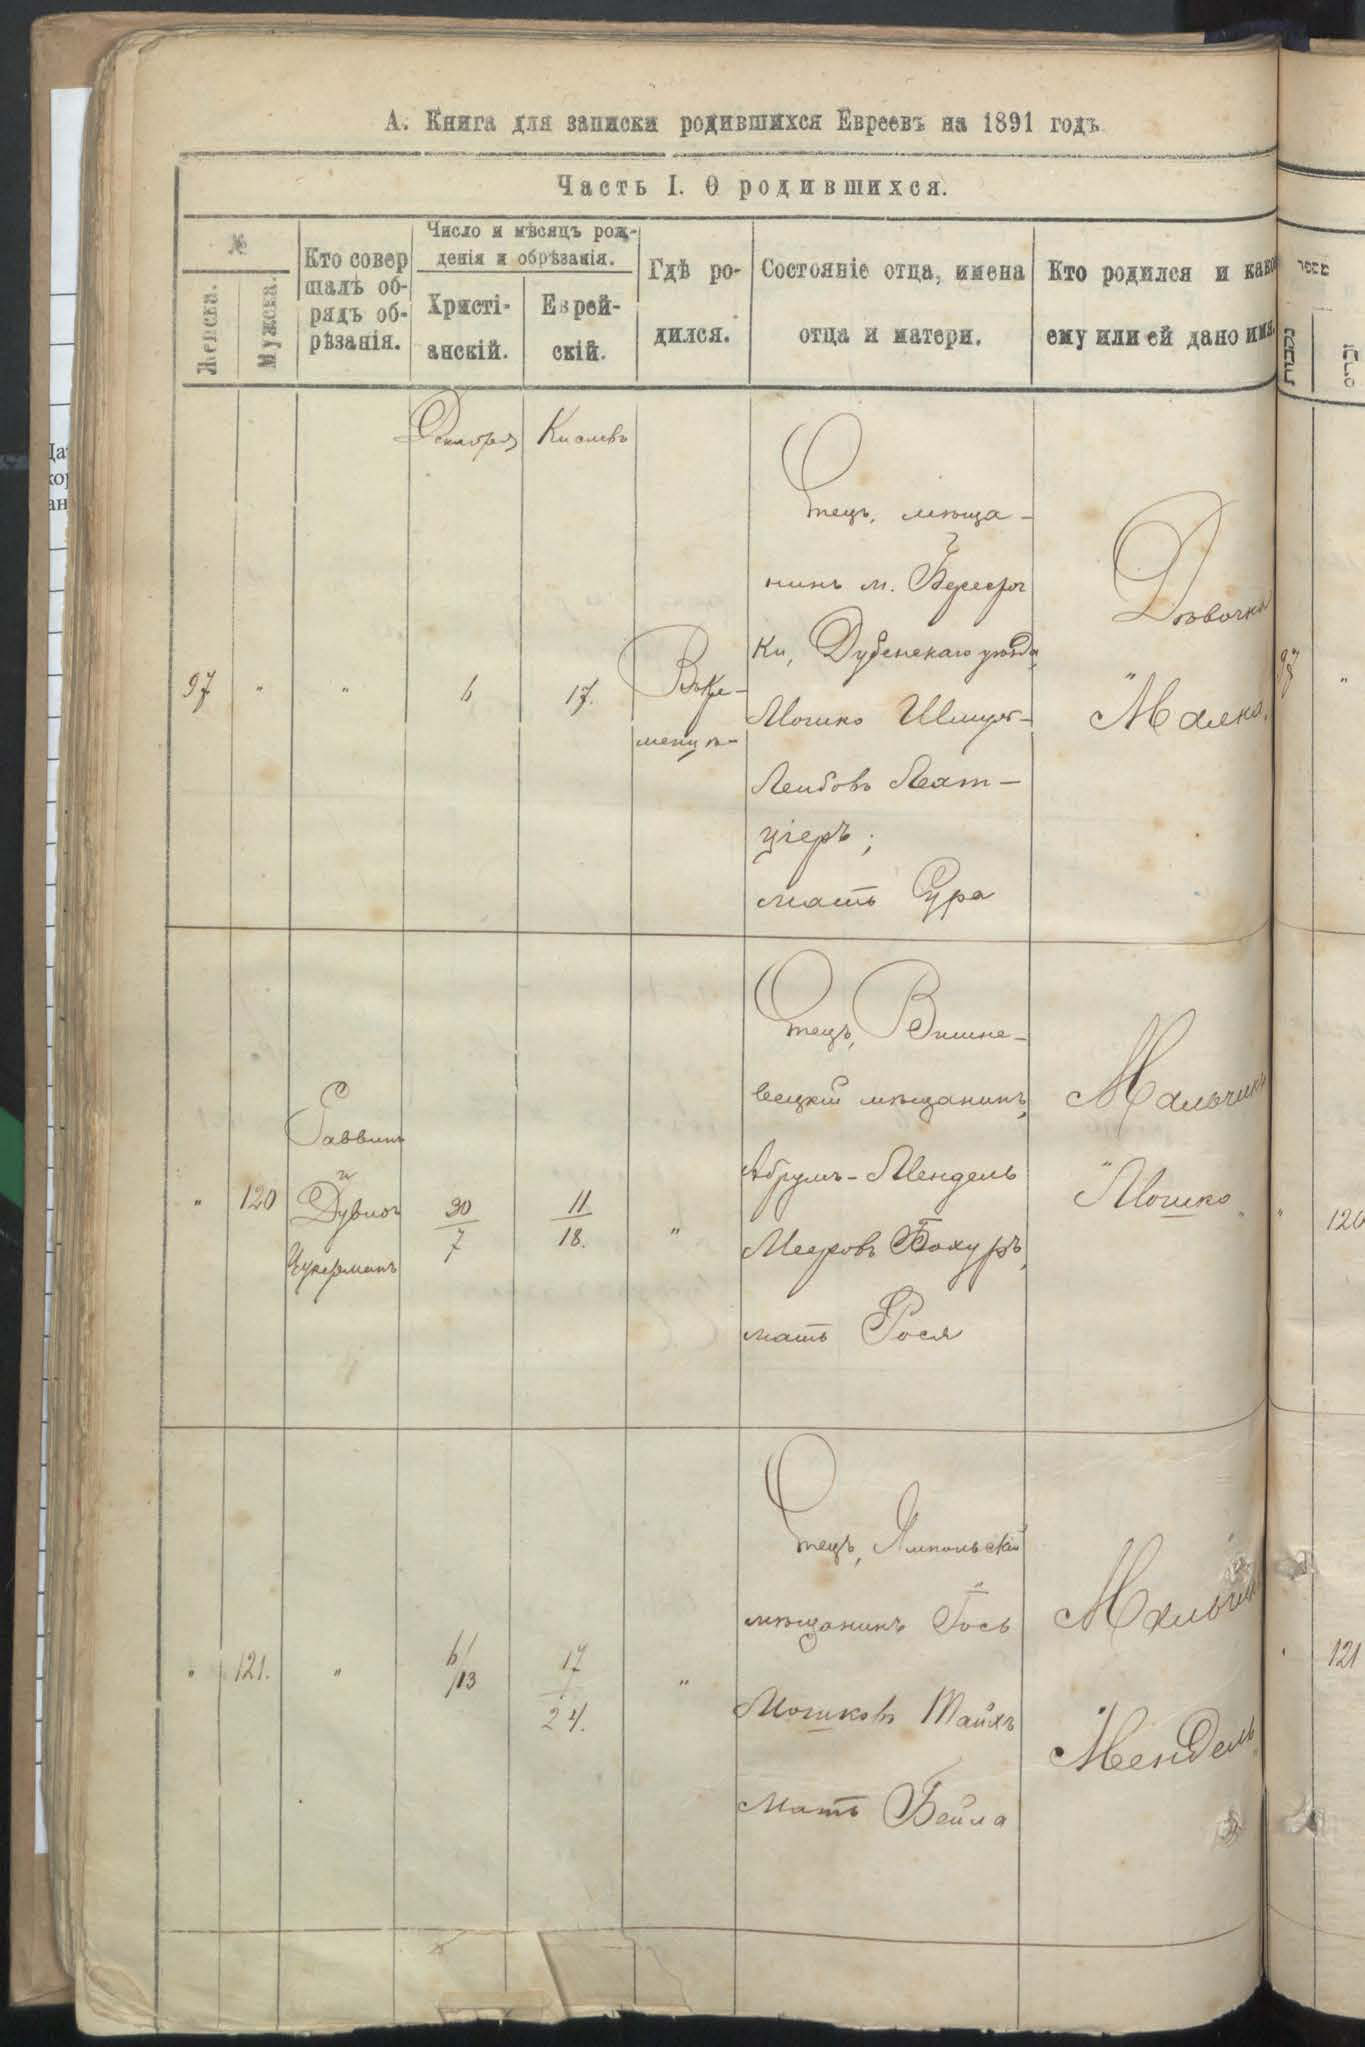 А. Книга для записки родившихся Евреевъ на 1891 годъ
Часть I. О родившихся.
№
Женска.
Мужска.
Кто совер
шалъ об-
рядъ об-
рѣзанія.
Число и мѣсяцъ рож-
денія и обрѣзанія.
Христі-
анскій.
Еврей-
скій.
Гдѣ ро-
дился.
Состояніе отца, имена
отца и матери.
Кто родился и како
ему или ей дано имя.
Декабря
Кислевъ
97
"
"
6
17.
Въ Кре-
менцѣ
Отецъ, мѣща-
нинъ м. Берестеч
ки, Дубенскаго уѣзда,
Мошко Шмуль-
Лейбовъ
мать Сура
Дѣвочка
"Малка"
97
"
"
120
Раввинъ
и
Дувидъ
Цукерманъ
30
7
11
18.
"
Отецъ, Вишне-
вецкій мѣщанинъ,
Абрумъ-Мендель
Мееровъ Бохуръ,
мать Рося
Мальчикъ
"Мошко"
"
120
"
121.
"
6/13
17
24.
"
Отецъ, Ямпольскій
мѣщанинъ Іось
Мошковъ Тайхъ
мать Бейла
Мальчикъ
"Мендель"
121